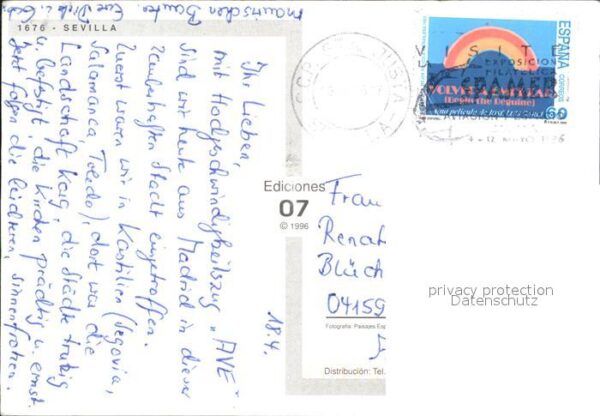 1676 - SEVILLA
18.4.
Ihr Lieben,
mit Hochgeschwindigkeitszug „AVE"
sind wir heute aus Madrid in dieser
zauberhaften Stadt eingetroffen.
Zuerst waren wir in Kastilien (Segovia,
Salamanca, Toledo), dort war die
Landschaft karg, die Städte trutzig
u. befestigt, die Kirchen prächtig u. ernst.
Jetzt folgen die leichteren, sinnenfrohen,
maurischen Bauten. Eure
Ediciones
07
© 1996
Frau
Renat
Blüch
04159
Fotografía: Paisajes Esp
Distribución: Tel.
VISITE
EXPOSICION
FILATELICA
ESPAÑA
CORREOS
VOLVER A EMPEZAR
(Begin the Beguine)
60
privacy protection
Datenschutz